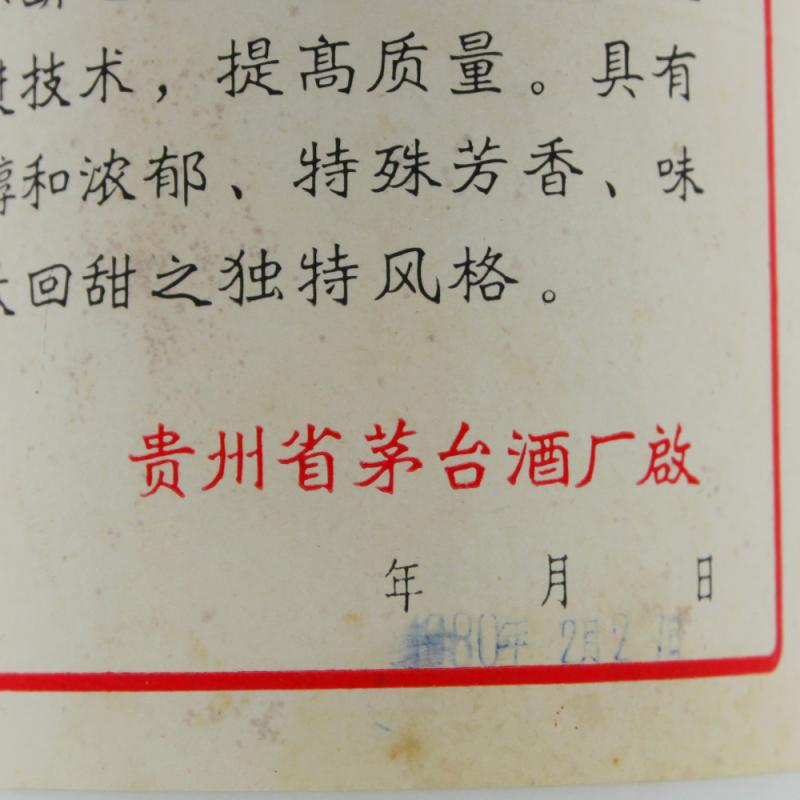 技术，提高质量。具有
和浓郁、特殊芳香、味
回甜之独特风格。
贵州省茅台酒厂啟
年 月 日
80年 2月2 日